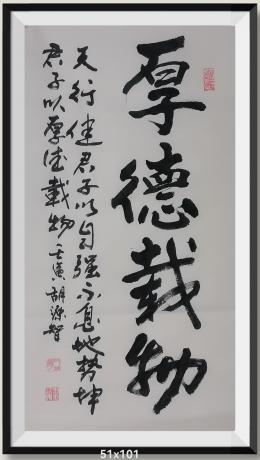 厚德载物
天行健君子以自强不息地势坤
君子以厚德载物 壬寅 胡源智
51x101